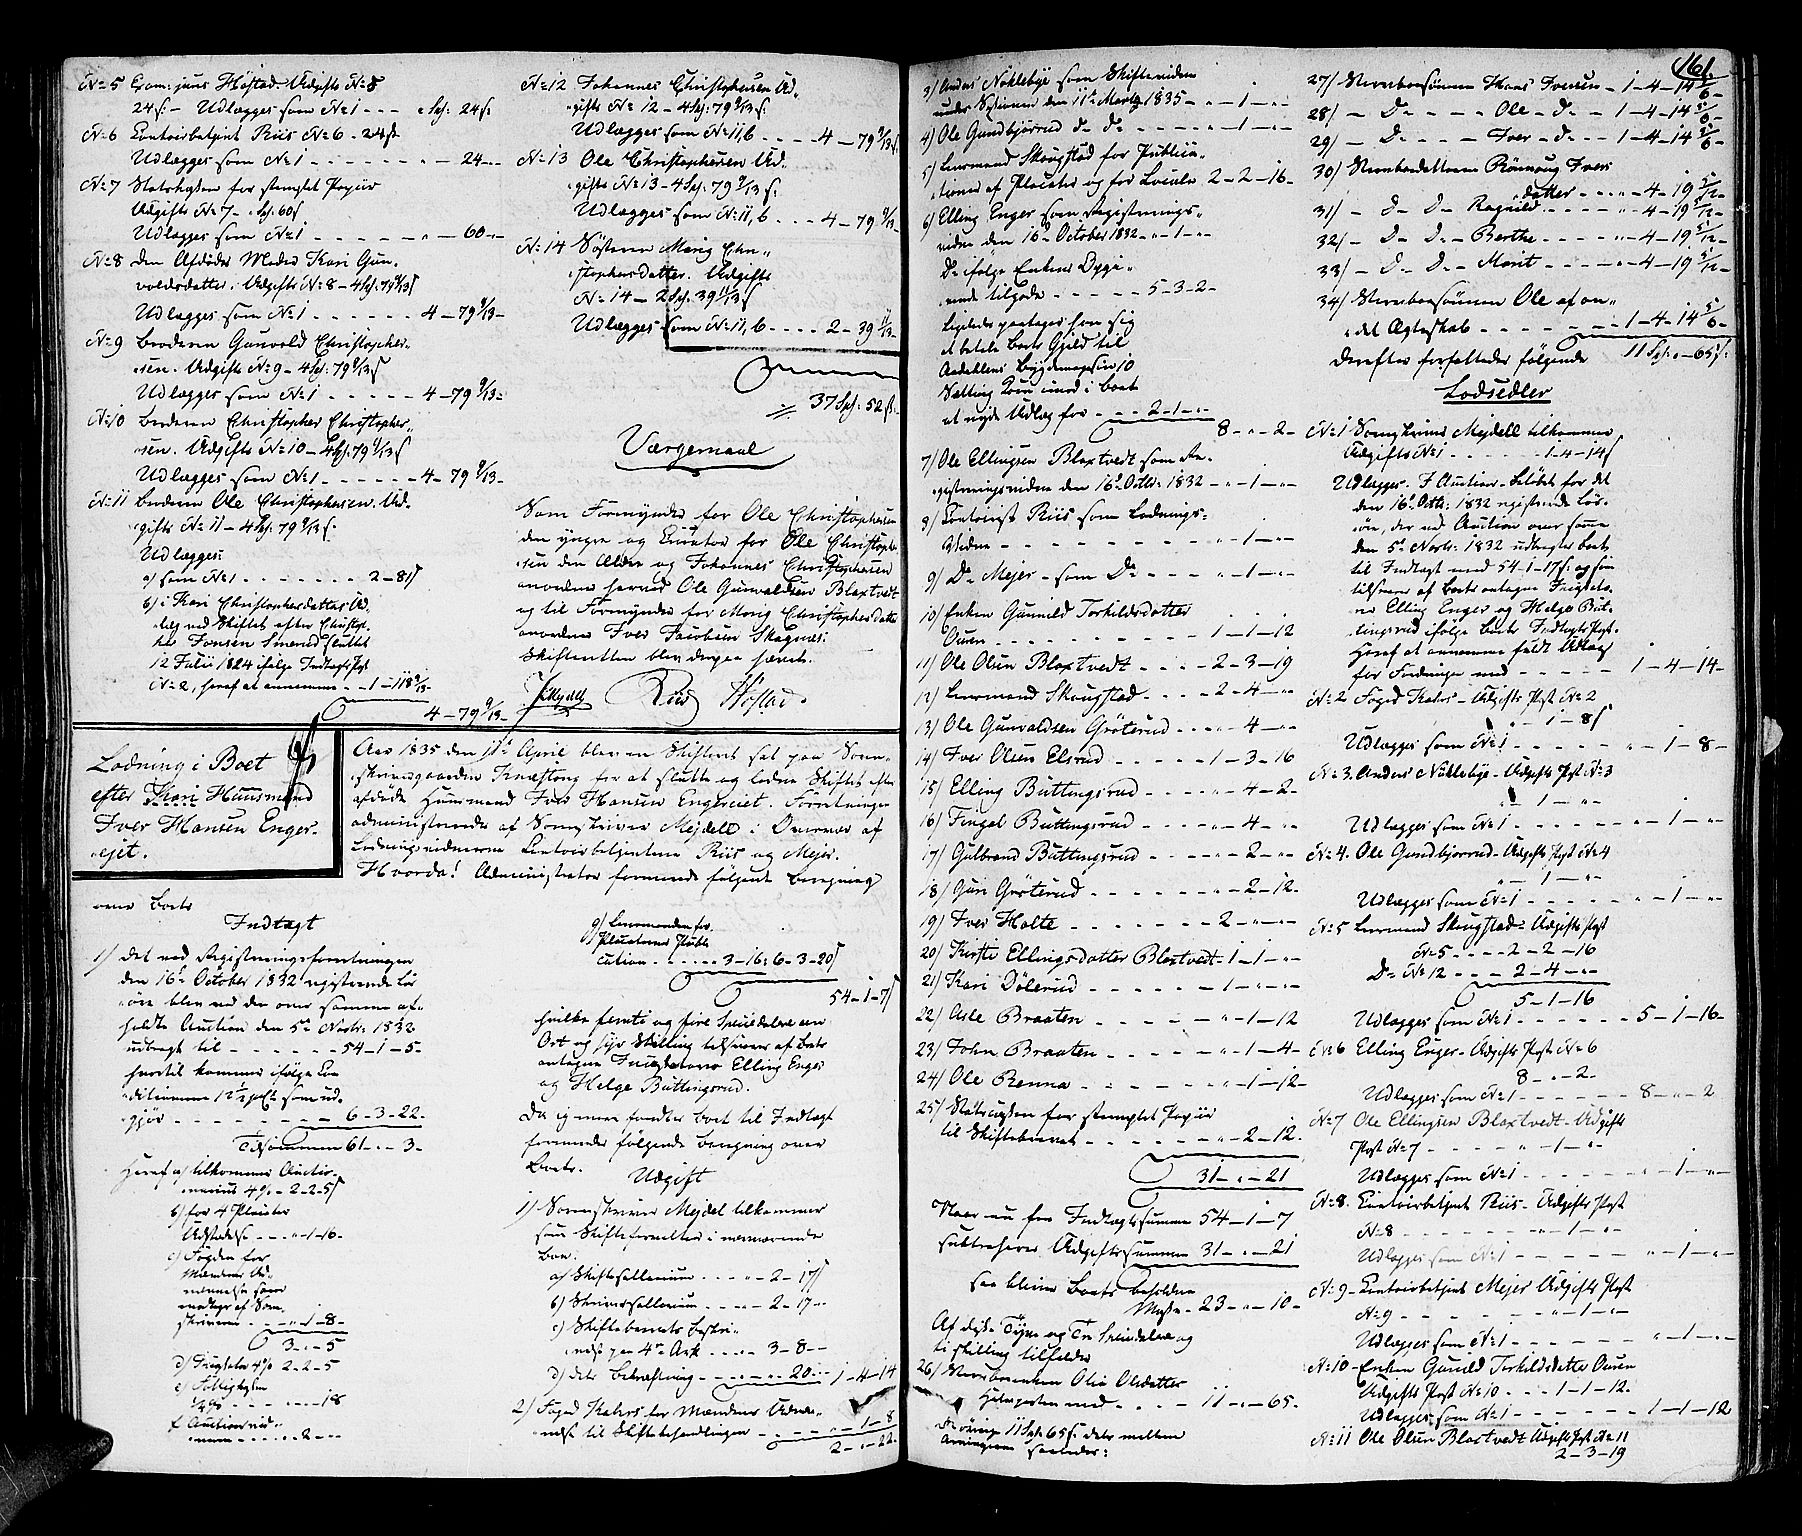 N: 5 Exam: juris Høstad. Udgifts N: 8
24 s - Udlægges som N: 1 - - „ Spd: 24 s.
N: 6 Contoirbetjent Riis N: 6 - 24 s
Udlægges som N: 1 - - - - - - „ - 24 -
N: 7 Statskassen for stemplet Papiir
Udgifts N: 7 - „ Spd: 60 s
Udlægges som N: 1 - - - - - „ - 60 -
N: 8 den Afdødes Moder Kari Gun-
voldsdatter. Udgifts N: 8 - 4 Spd: 79 9/13 s
Udlægges som N: 1 - - - - - - 4 - 79 9/13 -
N: 9 Broderen Gunvold Christopher-
sen. Udgifts N: 9 - 4 Spd: 79 9/13 s
Udlægges som N: 1 - - - - - 4 - 79 9/13 -
N: 10 Broderen Christopher Christopher-
sen. Udgifts N: 10 - 4 Spd: 79 9/13 s
Udlægges som N: 1 - - - - - 4 - 79 9/13 -
N: 11 Broderen Ole Christophersen. Ud-
gifts N: 11 - 4 Spd: 79 9/13 s.
Udlægges:
a) som N: 1 - - - - - - - 2 - 81 s
b) i Kari Christophersdatters Ud-
læg ved Skiftet efter Christop-
her Jonsen Smerud sluttet
12 Julii 1824 ifølge Indtægts Post
N: 2, heraf at annamme - - 1 - 118 9/13 -
4 - 79 9/13 -
N: 12 Johannes Christophersen Ud-
gifts N: 12 - 4 Spd: 79 9/13 s.
Udlægges som N: 11, b - - - 4 - 79 9/13 s.
N: 13 Ole Christophersen Ud-
gifts N: 13 - 4 Spd: 79 9/13 s.
Udlægges som N: 11, b - - - 4 - 79 9/13 -
N: 14 Søsteren Marig Chri-
stophersdatter. Udgifts
N: 14 - 2 Spd: 39 11/13 s
Udlægges som N: 11, b - - - - 2 - 39 11/13 -
37 Spd: 52 s.
Værgemaal
Som Formynder for Ole Christophersen
den yngre og Curator for Ole Christopher-
sen den Ældre og Johannes Christophersen
anordnes herved Ole Gunvaldsen Bloxtvedt
og til Formynder for Marig Christophersdatter
anordnes Iver Jacobsen Skagnæs:
Skifteretten blev derpaa hævet.
Mejdell Riis Høstad.
Lodning i Boet
efter Huusmand
Iver Hansen Enger-
ejet.
Aar 1835 den 11te April blev en Skifteret sat paa Soren-
skrivergaarden Knæstong for at slutte og lodne Skiftet efter
afdøde Huusmand Iver Hansen Engereiet. Forretningen
administreredes af Sorenskriver Mejdell i Overvær af
Lodningsvidnerne Contoirbetjentene Riis og Mejer.
Hvorda! Administrator formerede følgende Beregning
over Boets
Indtægt
1) Det ved Registreringsforretningen
den 16de October 1832 registrerede Lø-
søre blev ved den over samme af-
holdte Auction den 5te Novbr: 1832
udbragt til - - - - - - - 54 - 1 - 5 -
hvortil kommer ifølge Con-
ditionerne 12 1/2 pCt som ud-
gjør - - - - - - - - - 6 - 3 - 22 -
Tilsammen 61 - „ - 3 -
Heraf a) tilkommer Auctio-
narius 4% - 2 - 2 - 5 s
b) for 4 Placater
Udstedelse - - - „ - 1 - 16 -
c) Fogden for
Mændenes Ud-
nævnelse som
modtages af Soren-
skriveren - - - „ - 1 - 8 -
3 - „ - 5
d) Incassator 4% 2 - 2 - 5
e) Fattigkassen
1/4% - - - - - - - 18
f) Auctionsvid-
nerne - - - - - - 2 - „ -
g) Lensmanden for
Placaternes Publi-
cation - - - - - 3 - 16 : 6 - 3 - 20 s
54 - 1 - 7 s
hvilke femti og fire Speciedaler een
Ort og syv Skilling tilsvares af Boets
antagne Incassatorer Elling Enger
og Helge Buttingsrud.
Da ej mere fandtes Boet til Indtægt
formeredes følgende Beregning over
Boets.
Udgift
1) Sorenskriver Mejdel tilkommer
som Skifteforvalter i nærværende
Boe:
a) Skiftesallarium - - - „ - 2 - 17 s
b) Skriversallarium - - - „ - 2 - 17 -
c) Skiftebrevets Beskri-
velse paa 4re Ark - - - „ - 3 - 8 -
d) dets Bekræftning - - - - „ - 20 - 1 - 4 - 14
2) Foged Kahrs for Mændenes Udnæv-
nelse til Skiftebehandlingen - - - - - „ - 1 - 8
2 - „ - 22 -
161.
3) Anders Noklebye som Skiftevidne
under Sessionen den 11te Martz 1835 - „ - 1 - „ -
4) Ole Gundbjørrud do do - - - - - „ - 1 - „ -
5) Lensmand Skougstad for Publica-
tioner af Placater og for Locale 2 - 2 - 16 -
6) Elling Enger som Registrerings-
vidne den 16de October 1832 - „ - 1 - „ -
Do ifølge Enkens Opgi-
vende tilgode - - - - - 5 - 3 - 2 -
Ligeledes paatages han sig
at betale Boets Gjeld til
Aadahlens Bygdemagasin 10
Sætting Korn imod i Boet
at nyde Udlæg for - - - 2 - 1 - „ -
8 - „ - 2 -
7) Ole Ellingsen Bloxtvedt som Re-
gistreringsvidne den 16de Octbr: 1832 - „ - 1 - „ -
8) Contoirist Riis som Lodnings-
Vidne - - - - - - - - - - - „ - 1 - „ -
9) Do Mejer - som Do - - - - „ - 1 - „ -
10) Enken Gunild Torkildsdatter
Ouren - - - - - - - - - - 1 - 1 - 12
11) Ole Olsen Bloxtvedt - - - - 2 - 3 - 19
12) Lensmand Skougstad - - - - 2 - 4 - „
13) Ole Gunvaldsen Grøterud - - - „ - 4 - „ -
14) Iver Olsen Elsrud - - - - - 1 - 3 - 16
15) Elling Buttingsrud - - - - - „ - 4 - 2 -
16) Fingal Buttingsrud - - - - - „ - 4 - „ -
17) Gulbrand Buttingsrud - - - - „ - 2 - „
18) Guri Grøterud - - - - - - „ - 2 - 12 -
19) Iver Holte - - - - - - - 2 - „ - „
20) Kirsti Ellingsdatter Bloxtvedt - 1 - 1 - „ -
21) Kari Dølerud - - - - - - - 1 - „ - „
22) Asle Braaten - - - - - - - „ - 1 - 12
23) John Braaten - - - - - - „ - 1 - 4 -
24) Ole Renna - - - - - - - „ - 1 - 12 -
25) Statscassen for stemplet Papiir
til Skiftebrevet - - - - - - - „ - 2 - 12 -
31 - „ - 21
Naar nu fra Indtægtssummen 54 - 1 - 7
subtraheres Udgiftssummen 31 - „ - 21
saa bliver Boets beholdne
Masse - 23 - „ - 10 -
Af disse Tyve og Tre Speciedaler og
ti skilling tilfalder
26) Stervboenken Olia Olsdatter
Halvparten med - - - - 11 - „ - 65 -
De øvrige 11 Spd: 65 s: deles mellem
Arvingerne saaledes:
27) Stervboesønnen Hans Iversen - 1 - 4 - 14 5/6 -
28) - Do - - - - Ole - Do - 1 - 4 - 14 5/6 -
29) - Do - - - - Iver - Do - 1 - 4 - 14 5/6 -
30) Stervboedatteren Rønnaug Ivers-
datter - - - - „ - 4 - 19 5/12 -
31) - Do - Do - Ragnild - - - - „ - 4 - 19 5/12 -
32) - Do - Do - Berthe - - - - - „ - 4 - 19 5/12 -
33) - Do - Do - Marit - - - - - „ - 4 - 19 5/12 -
34) Stervboesønnen Ole af an-
det Ægteskab - - - - - - - - 1 - 4 - 14 5/6 -
11 Spd: „ - 65 s:
Derefter forfattedes følgende
Lodsedler
N: 1 Sorenskriver Mejdell tilkommer
Udgifts N: 1 - - - - - - 1 - 4 - 14 s
Udlægges. I Auctions-Beløbet for det
den 16de Octbr: 1832 registrerede Løs-
øre, der ved Auction over samme
den 5te Novbr: 1832 udbragtes Boets
til Indtægt med 54 - 1 - 17 s: og som
tilsvares af Boets antagne Incassato-
rer Elling Enger og Helge But-
tingsrud ifølge Boets Indtægts Post.
Heraf at annamme fuldt Udlæg
for Fordringen med - - - - - 1 - 4 - 14 -
N: 2 Foged Kahrs - Udgifts Post N: 2
„ - 1 - 8 s
Udlægges som N: 1 - - - - - „ - 1 - 8 -
N: 3. Anders Noklebye - Udgifts Post N: 3
„ - 1 - „ -
Udlægges som N: 1 - - - - - „ - 1 - „ -
N: 4. Ole Gundbjørrud - Udgifts Post N: 4
„ - 1 - „ -
Udlægges som N: 1 - - - - - „ - 1 - „
N: 5 Lensmand Skougstad - Udgifts Post
N: 5 - - - - 2 - 2 - 16
Do N: 12 - - - - 2 - 4 - „ -
5 - 1 - 16
Udlægges som N: 1 - - - - - - 5 - 1 - 16 -
N: 6 Elling Enger - Udgifts Post N: 6
8 - „ - 2 -
Udlægges som N: 1 - - - - - - 8 - „ - 2
N: 7 Ole Ellingsen Bloxtvedt - Udgifts
Post N: 7 - - - - - „ - 1 - „ -
Udlægges som N: 1 - - - - - - „ - 1 - „ -
N: 8. Contoirbetjent Riis - Udgifts Post
N: 8 - - - - - - - - „ - 1 - „ -
Udlægges som N: 1 - - - - - - „ - 1 - „
N: 9 - Contoirbetjent Mejer Udgifts Post
N: 9 - - - - - - - „ - 1 - „ -
Udlægges som N: 1 - - - - - - „ - 1 - „ -
N: 10 - Enken Gunild Torkildsdatter Ouren
Udgifts Post N: 10 - - - 1 - 1 - 12.
Udlægges som N: 1 - - - - - - - 1 - 1 - 12
N: 11 Ole Olsen Bloxtvedt Udgifts Post N: 11
2 - 3 - 19